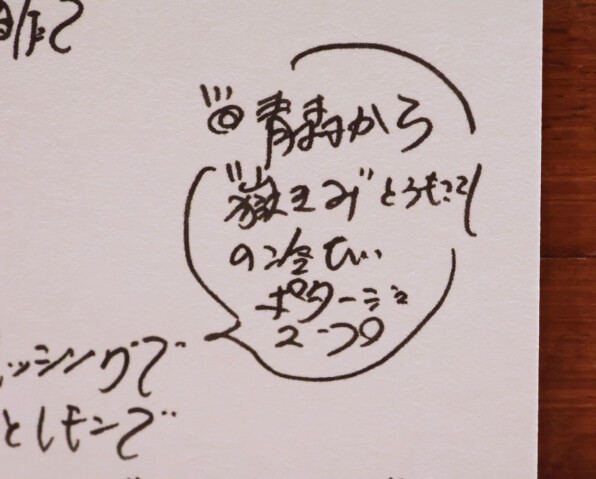 ◎青森から
"嶽きみ"とうもろこし
の冷たい
ポタージュ
スープ
ッシングで
とレモンで